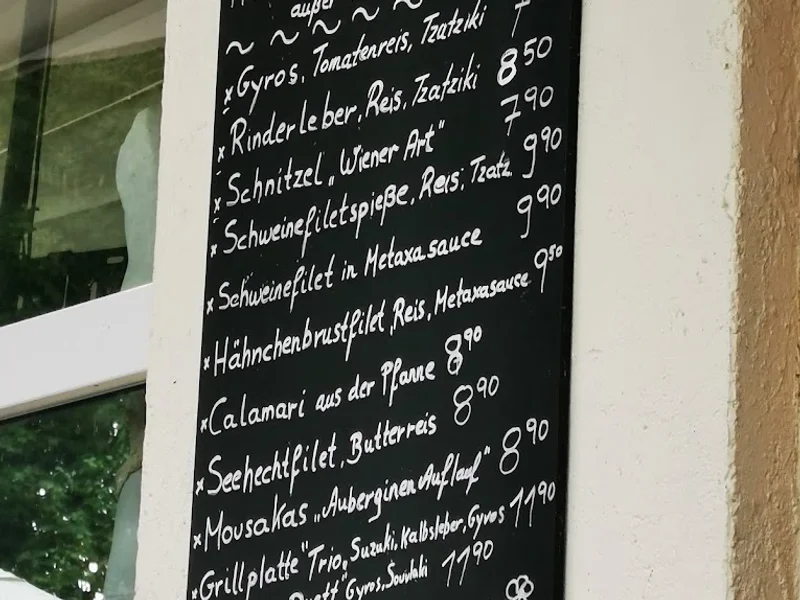 außer
~ ~ ~ ~ ~
x Gyros, Tomatenreis, Tzatziki 7
x Rinderleber, Reis, Tzatziki 8 50
x Schnitzel „Wiener Art" 7 90
x Schweinefiletspieße, Reis, Tzatz. 9 90
x Schweinefilet in Metaxasauce 9 90
x Hähnchenbrustfilet, Reis, Metaxasauce 9 50
x Calamari aus der Pfanne 8 90
x Seehechtfilet, Butterreis 8 90
x Mousakas „Auberginen Auflauf" 8 90
x Grillplatte "Trio, Suzuki, Kalbsleber, Gyros 11 90
Duett" Gyros, Souvlaki 11 90